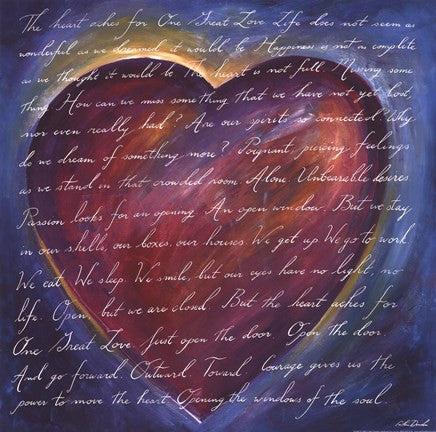 The heart aches for One Great Love Life does not seem as
wonderful as we dreamed it would be Happiness is not as complete
as we thought it would be The heart is not full. Missing some
thing. How can we miss something that we have not yet lost,
nor even really had? Are our spirits so connected? Why
do we dream of something more? Poignant, piercing feelings
as we stand in that crowded room. Alone. Unbearable desires
Passion looks for an opening. An open window. But we stay
in our shells, our boxes, our houses. We get up We go to work.
We eat. We sleep. We smile, but our eyes have no light, no
life. Open, but we are closed. But the heart aches for
One Great Love. Just open the door. Open the door.
And go forward. Outward. Toward. Courage gives us the
power to move the heart Opening the windows of the soul.